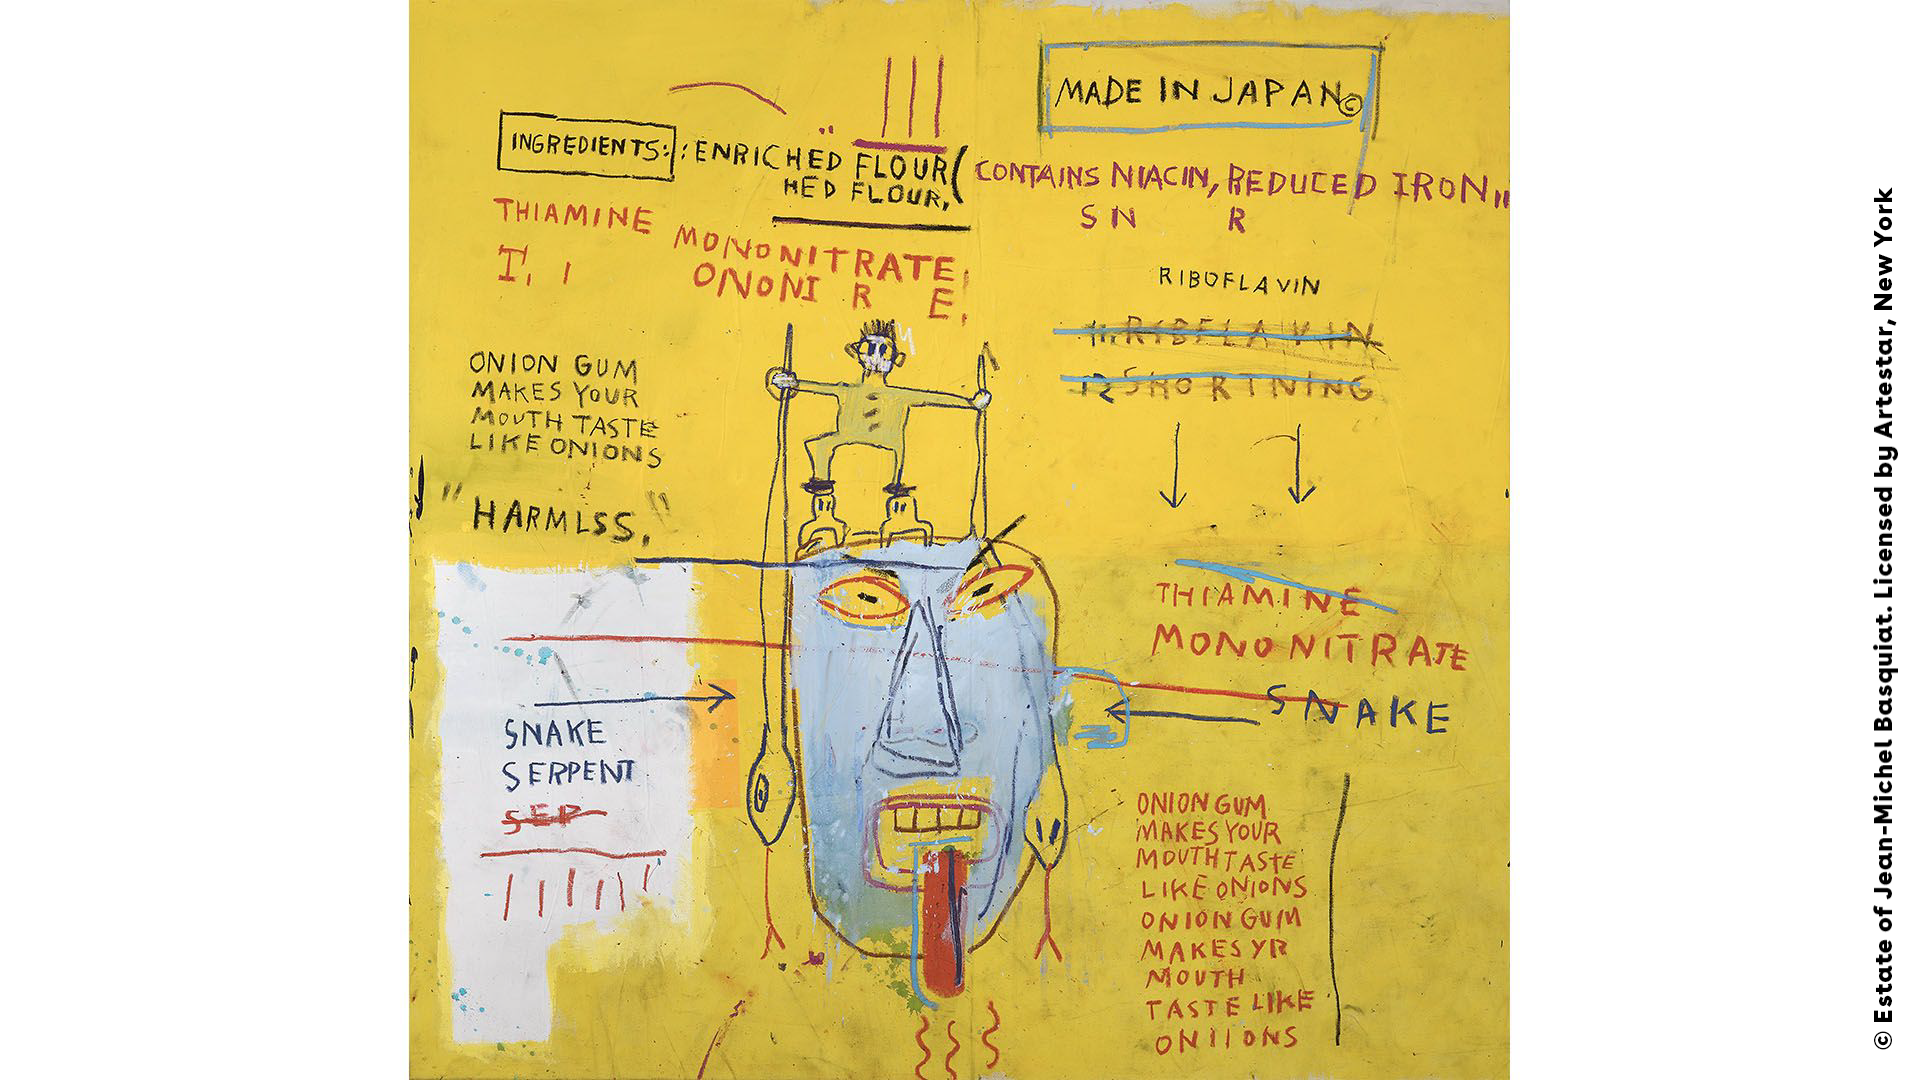 MADE IN JAPAN©
INGREDIENTS: : ENRICHED FLOUR ( CONTAINS NIACIN, REDUCED IRON,,
HED FLOUR,
S N R
THIAMINE MONONITRATE,
T. I ONONI R E.
RIBOFLAVIN
RIBFLAVIN
12 SHORTNING
ONION GUM
MAKES YOUR
MOUTH TASTE
LIKE ONIONS
"HARMLSS."
THIAMINE
MONONITRATE
SNAKE
SNAKE
SERPENT
SEP
ONION GUM
MAKES YOUR
MOUTH TASTE
LIKE ONIONS
ONION GUM
MAKES YR
MOUTH
TASTE LIKE
ONIIONS
© Estate of Jean-Michel Basquiat. Licensed by Artestar, New York